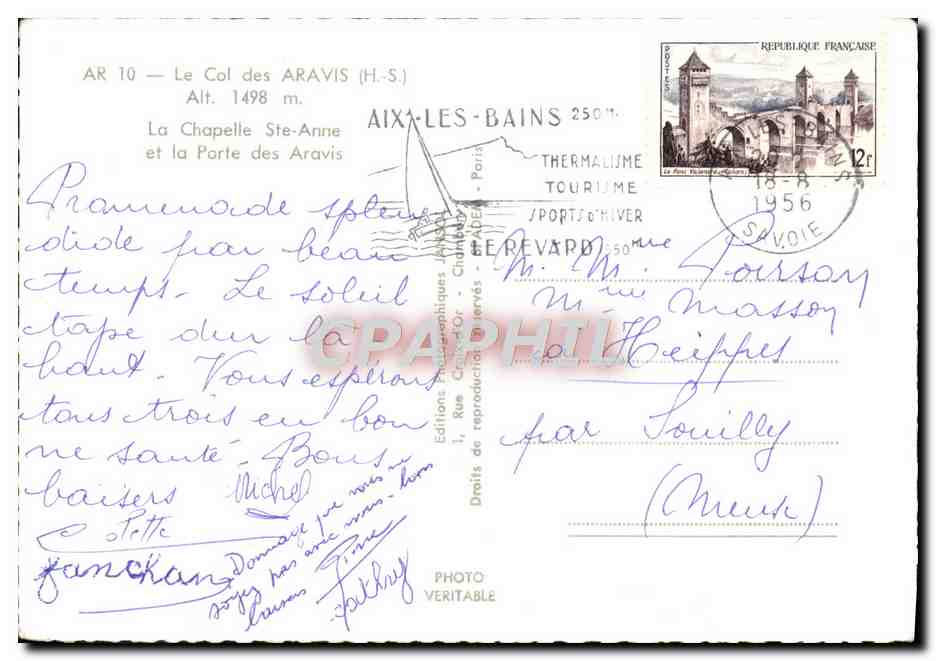 AR 10 — Le Col des ARAVIS (H.-S.)
Alt. 1498 m.
La Chapelle Ste-Anne
et la Porte des Aravis
Promenade splen
dide par beau
temps. Le soleil
tape dur là
haut. Vous espérons
tous trois en bon
ne santé. Bons
baisers Michel
Colette
Dommage que vous ne
soyez pas avec nous. bons
baisers
Editions Photographiques JANSOL
1, Rue Croix d'Or - Chambéry
Droits de reproduction réservés - BLADER - Paris
PHOTO
VERITABLE
AIX-LES-BAINS 250 M.
THERMALISME
TOURISME
SPORTS D'HIVER
LE REVARD
REPUBLIQUE FRANÇAISE
POSTES
12F
18-8
1956
SAVOIE
M. Mme Poirson
Mme Masson
à Heippes
par Souilly
(Meuse)
CPAPHIL